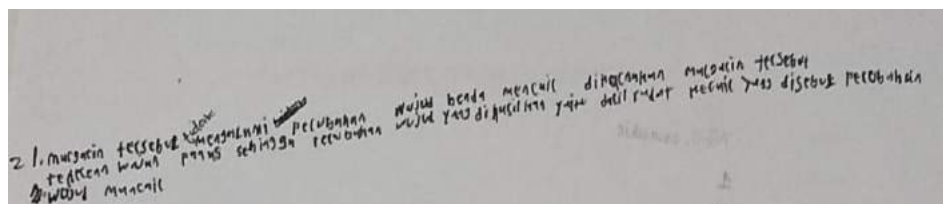 2 1. margarin tersebut telah mengalami perubahan wujud benda mencair dipanaskan margarin tersebut
terkena wajan panas sehingga perubahan wujud yang dihasilkan yaitu dari padat mencair yang disebut perubahan
wujud mencair